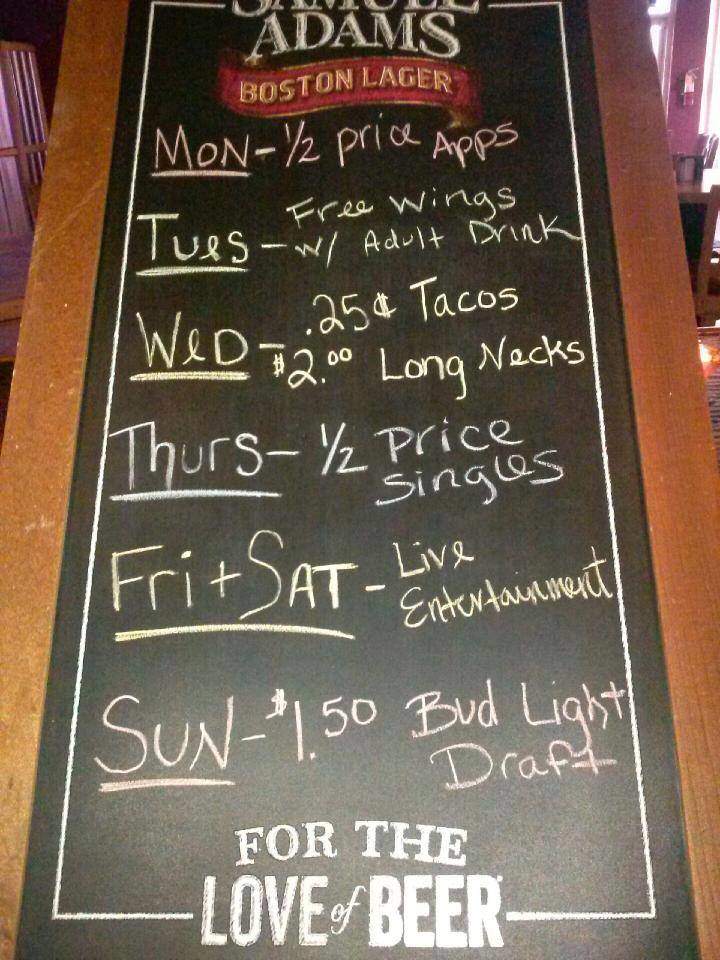 SAMUEL
ADAMS
BOSTON LAGER
MON - 1/2 price Apps
Tues - Free Wings
w/ Adult Drink
WeD - .25¢ Tacos
$2.00 Long Necks
Thurs - 1/2 Price
Singles
Fri + SAT - Live
Entertainment
SUN - $1.50 Bud Light
Draft
FOR THE
LOVE of BEER